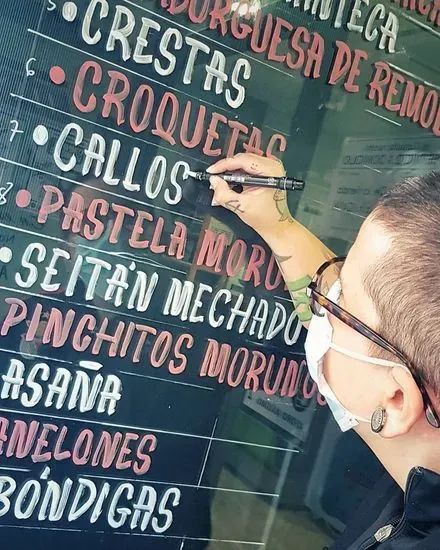 MANTECA
5 • CRESTAS
DURGUESA DE REMO
6 • CROQUETAS
7 • CALLOS
8 • PASTELA MORU
• SEITÁN MECHADO
PINCHITOS MORUNO
ASAÑA
ANELONES
BÓNDIGAS